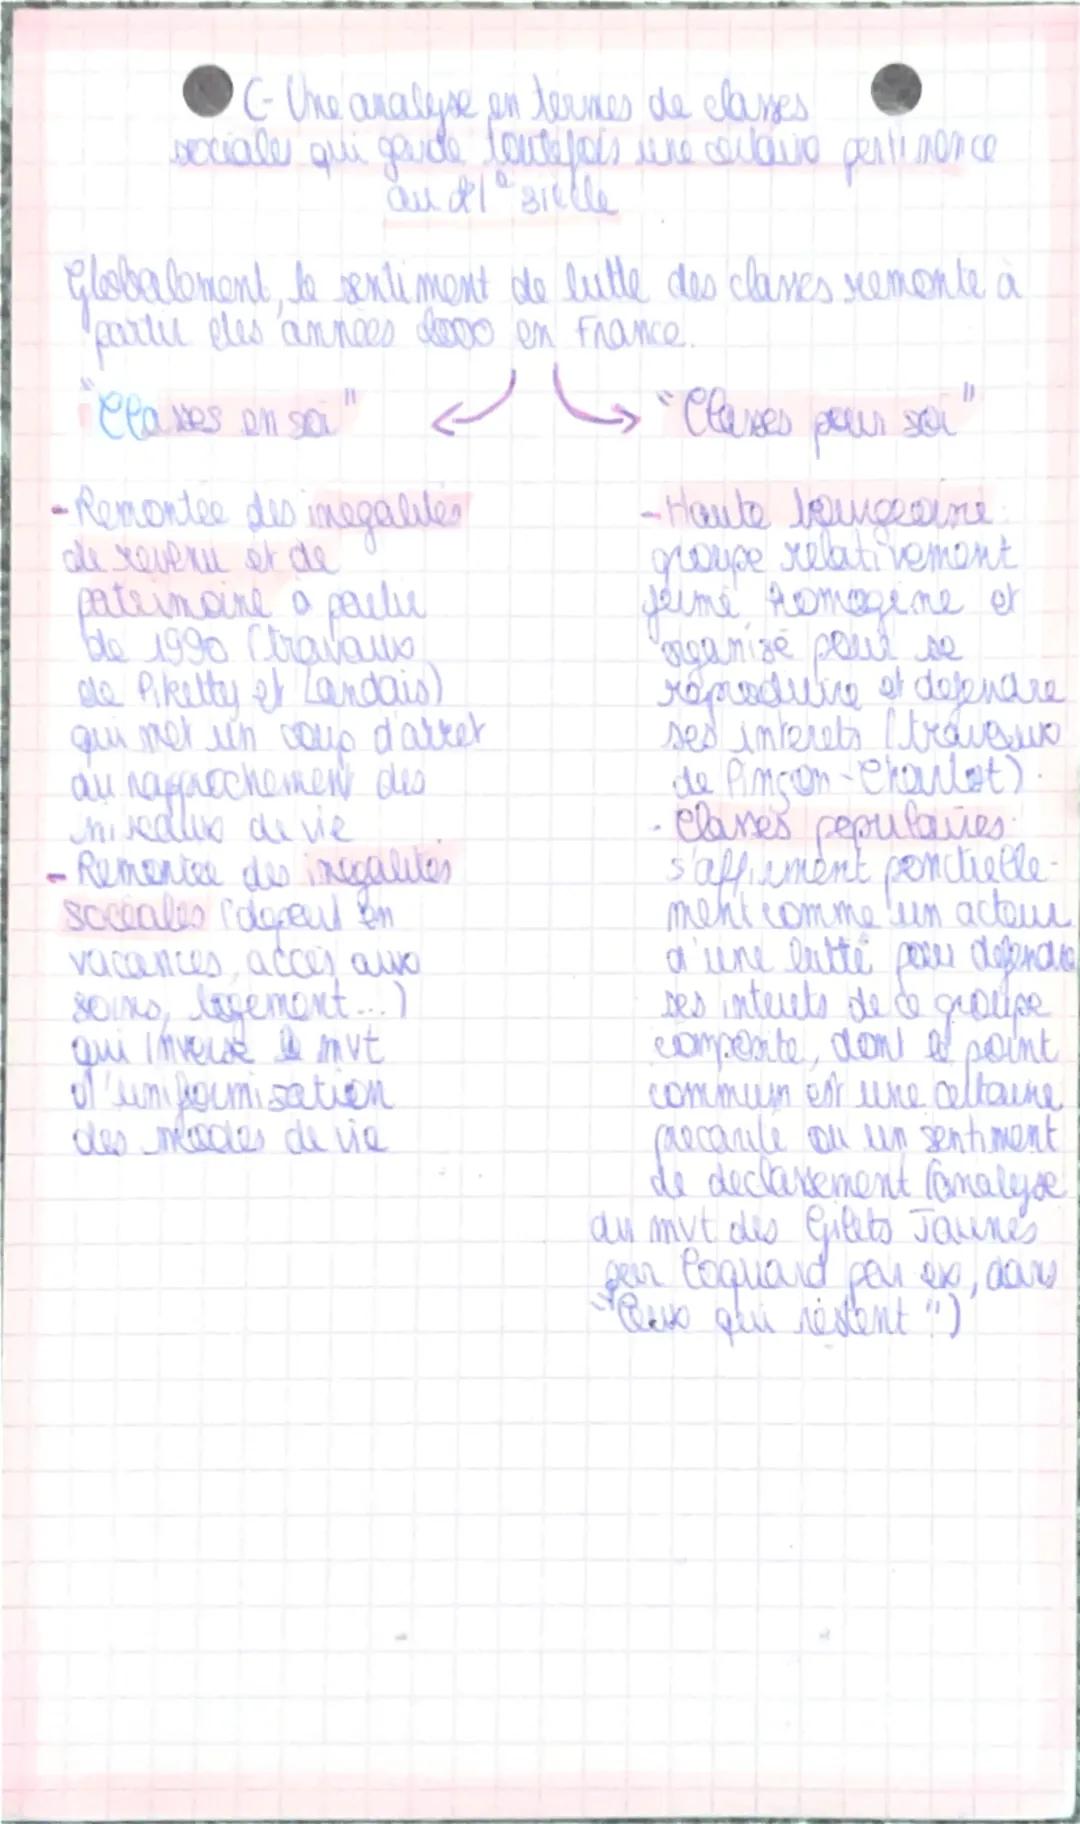 C- Une analyse en termes de classes
sociales qui garde toutefois une certaine pertinence
au 21e siècle
Globalement, le sentiment de lutte des classes remonte à
partir des années 2000 en France.
"Classes en soi"
- Remontée des inégalités
de revenu et de
patrimoine a partir
de 1990 (travaux
de Piketty et Landais)
qui met un coup d'arret
au rapprochement des
niveaux de vie
- Remontée des inégalités
sociales (départ en
vacances, accès aux
soins, logement...)
qui inverse le mvt
d'uniformisation
des modes de vie
"Classes pour soi"
- Haute bourgeoisie:
groupe relativement
fermé, homogène et
organisé pour se
reproduire et defendre
ses interets (travaux
de Pinçon-Charlot).
- Classes populaires:
s'affirment ponctuelle-
ment comme un acteur
d'une lutte pour defendre
ses interets de ce groupe
composite, dont le point
commun est une certaine
precarite ou un sentiment
de declassement (analyse
du mvt des Gilets Jaunes
par Coquard par ex, dans
"Ceux qui restent")